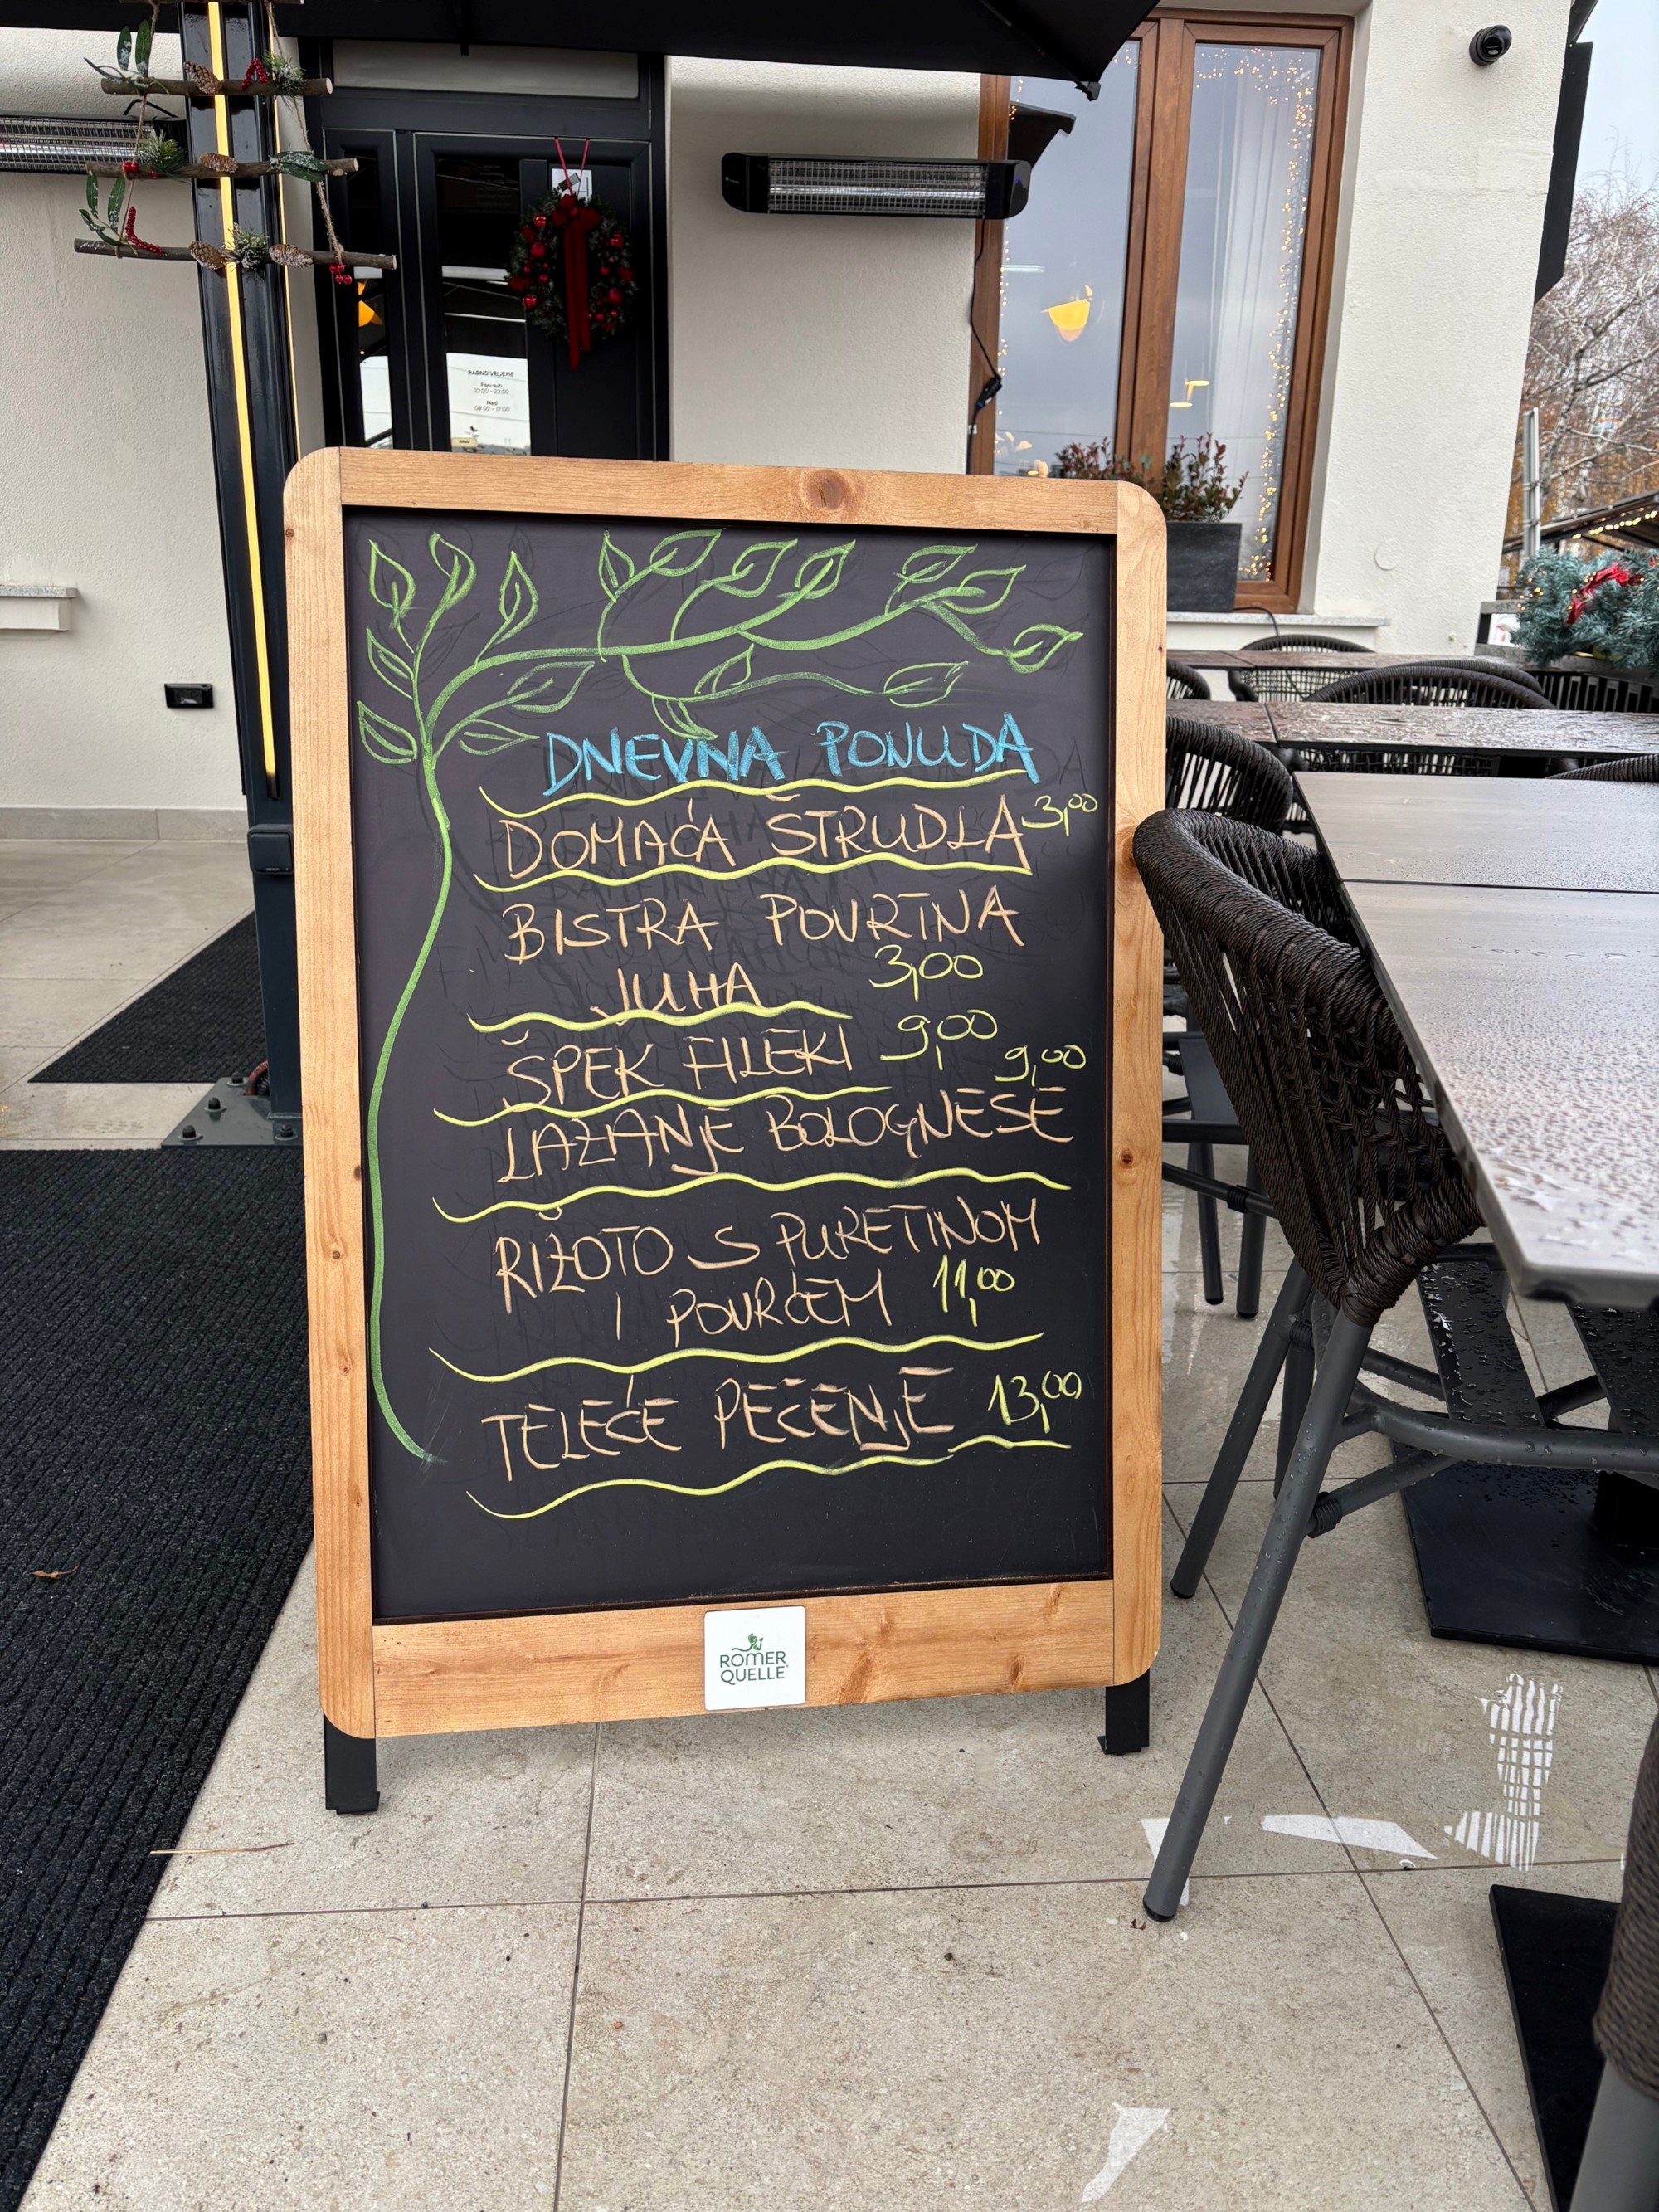 RADNO VRIJEME
Pon-sub
10:00 - 23:00
Ned
09:00 - 17:00
DNEVNA PONUDA
DOMAĆA ŠTRUDLA 3,00
BISTRA POVRTNA
JUHA 3,00
ŠPEK FILEKI 9,00
LAZANJE BOLOGNESE 9,00
RIŽOTO S PURETINOM
I POVRĆEM 11,00
TELEĆE PEČENJE 13,00
RÖMER
QUELLE